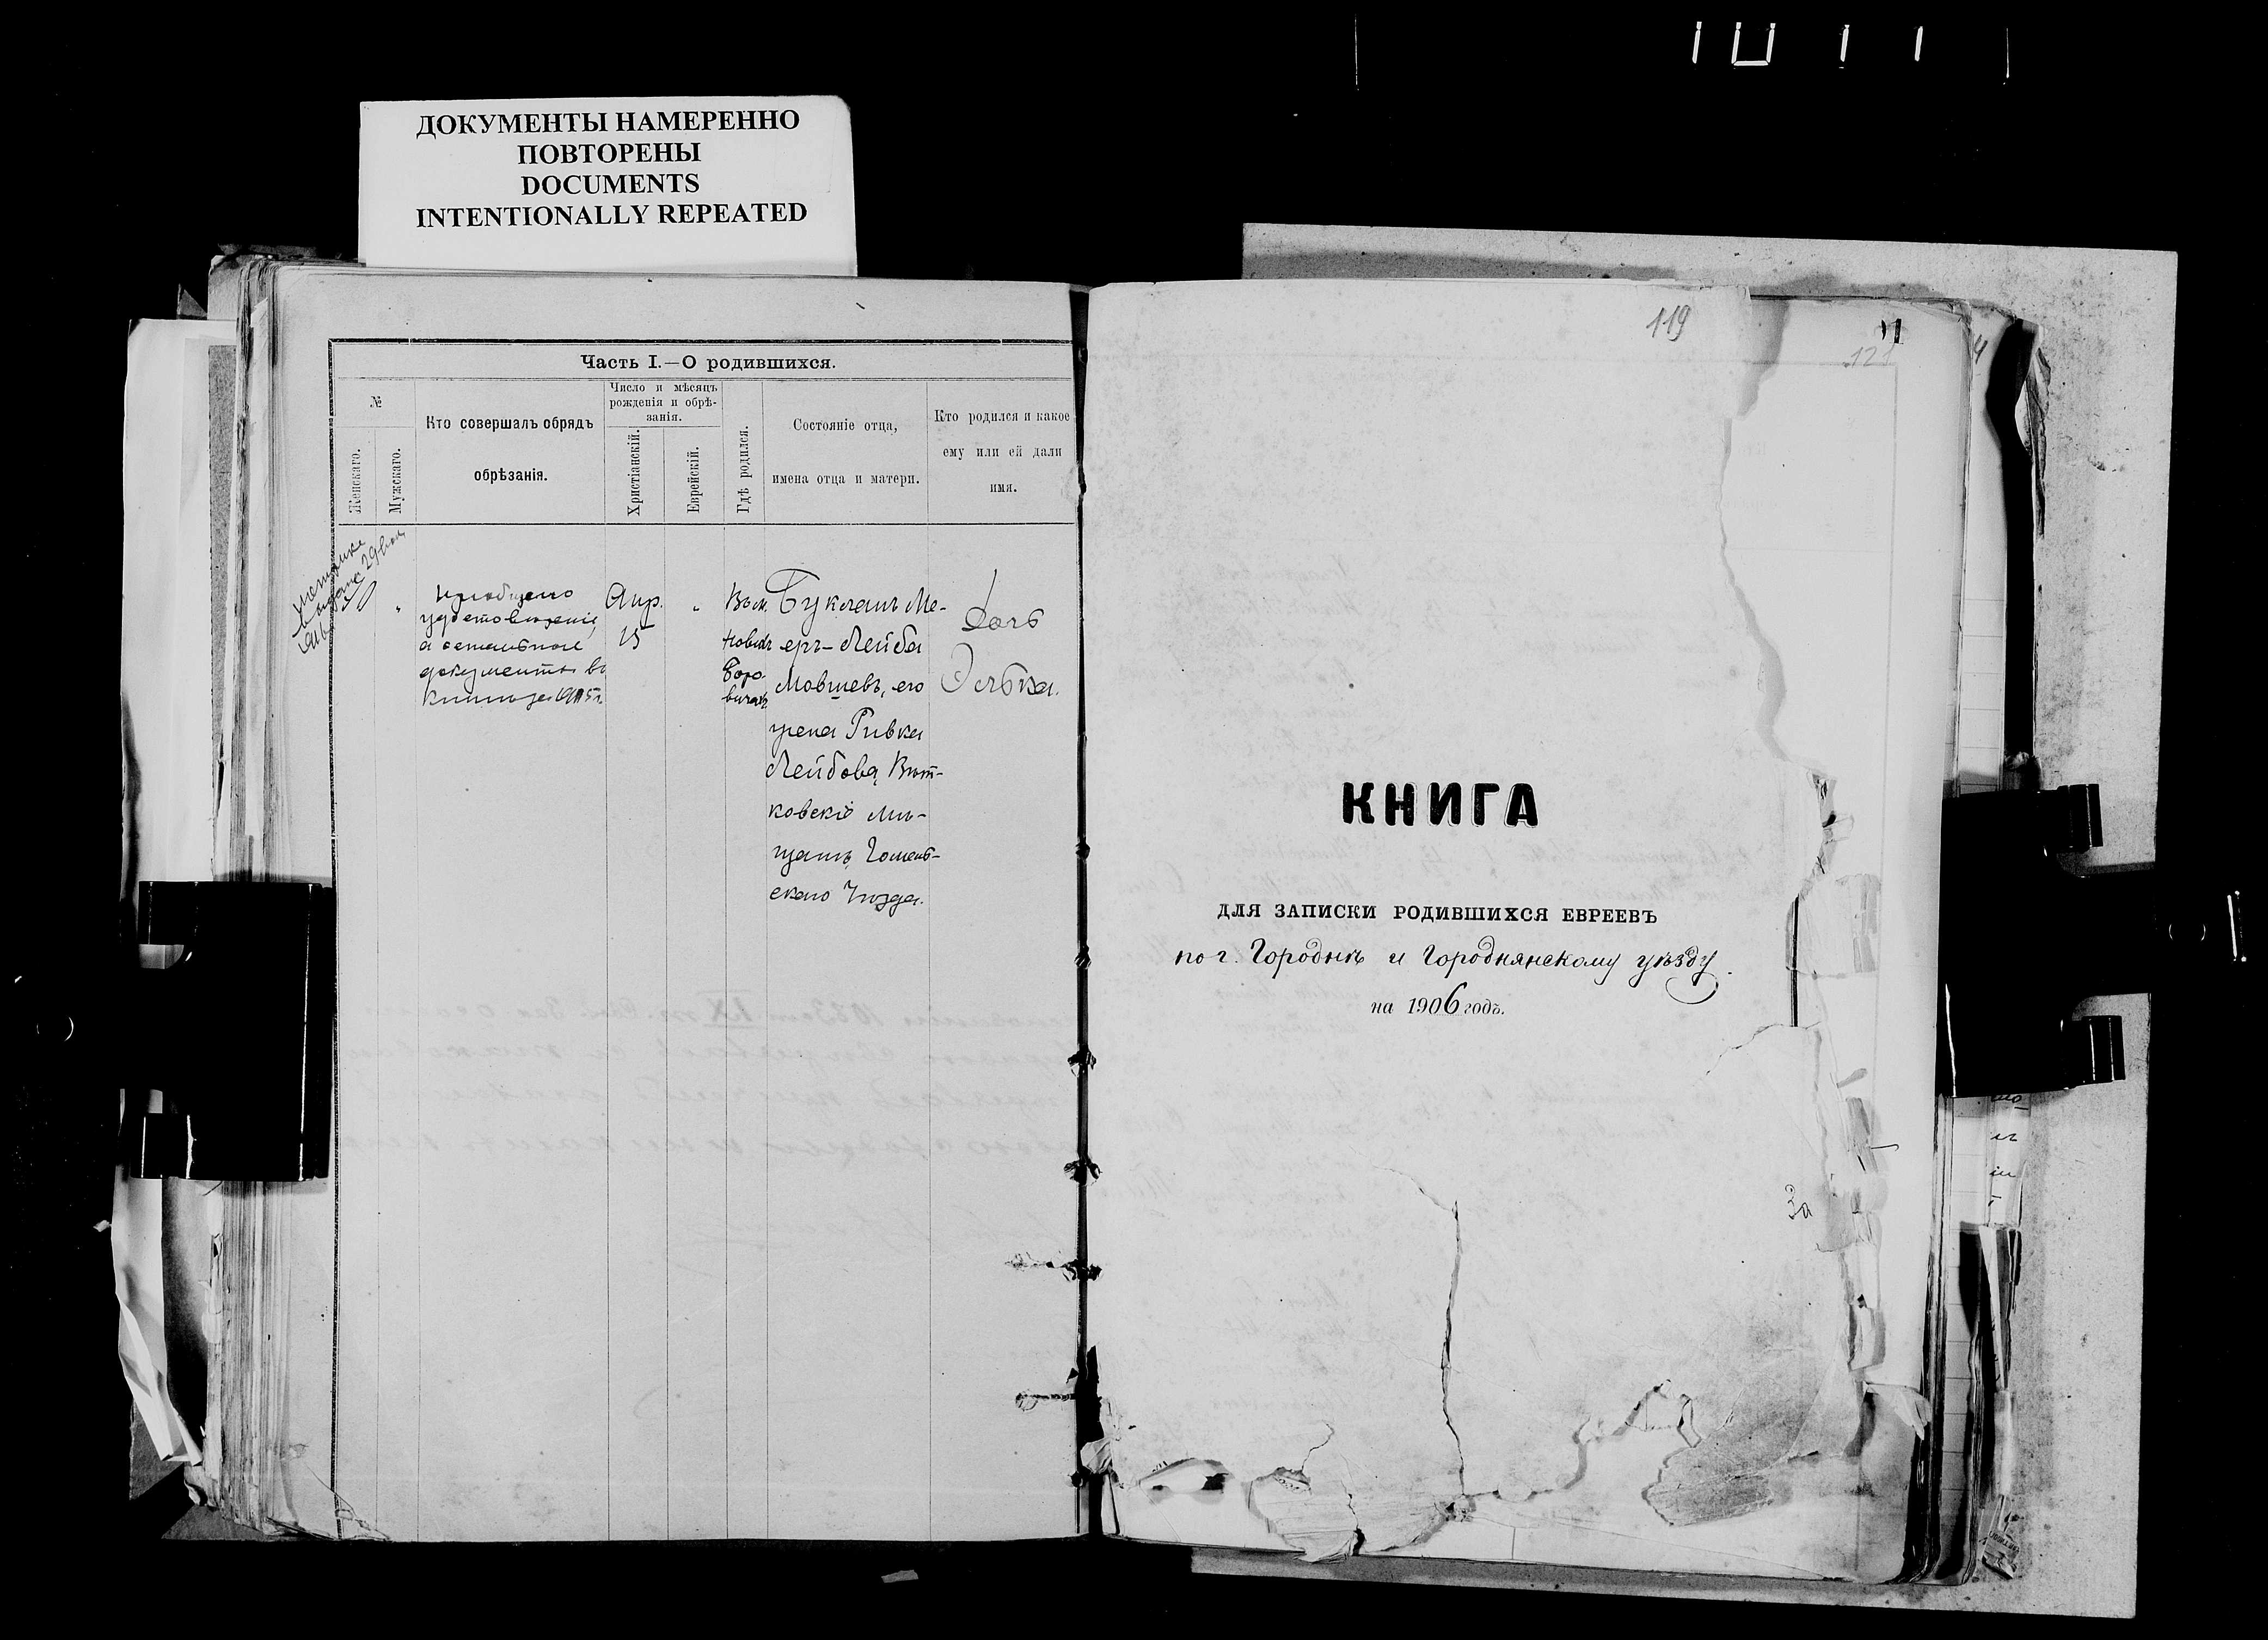 ДОКУМЕНТЫ НАМЕРЕННО
ПОВТОРЕНЫ
DOCUMENTS
INTENTIONALLY REPEATED
Часть I.—О родившихся.
№
Женскаго.
Мужскаго.
Кто совершалъ обрядъ
обрѣзанія.
Число и мѣсяцъ
рожденія и обрѣ-
занія.
Христіанскій.
Еврейскій.
Гдѣ родился.
Состояніе отца,
имена отца и матери.
Кто родился и какое
ему или ей дали
имя.
документы въ
Апр.
15
Въ м.
Новыхъ
Боро-
вичахъ
Букманъ Ме-
еръ-Лейба
Мовшевъ, его
жена Ривка
Лейбова, Вѣт-
ковскіе мѣ-
щане, Гомель-
скаго Уѣзда.
Дочь
Элька.
119
121
КНИГА
ДЛЯ ЗАПИСКИ РОДИВШИХСЯ ЕВРЕЕВЪ
по г. Городнѣ и Городнянскому уѣзду.
на 1906 годъ.
За